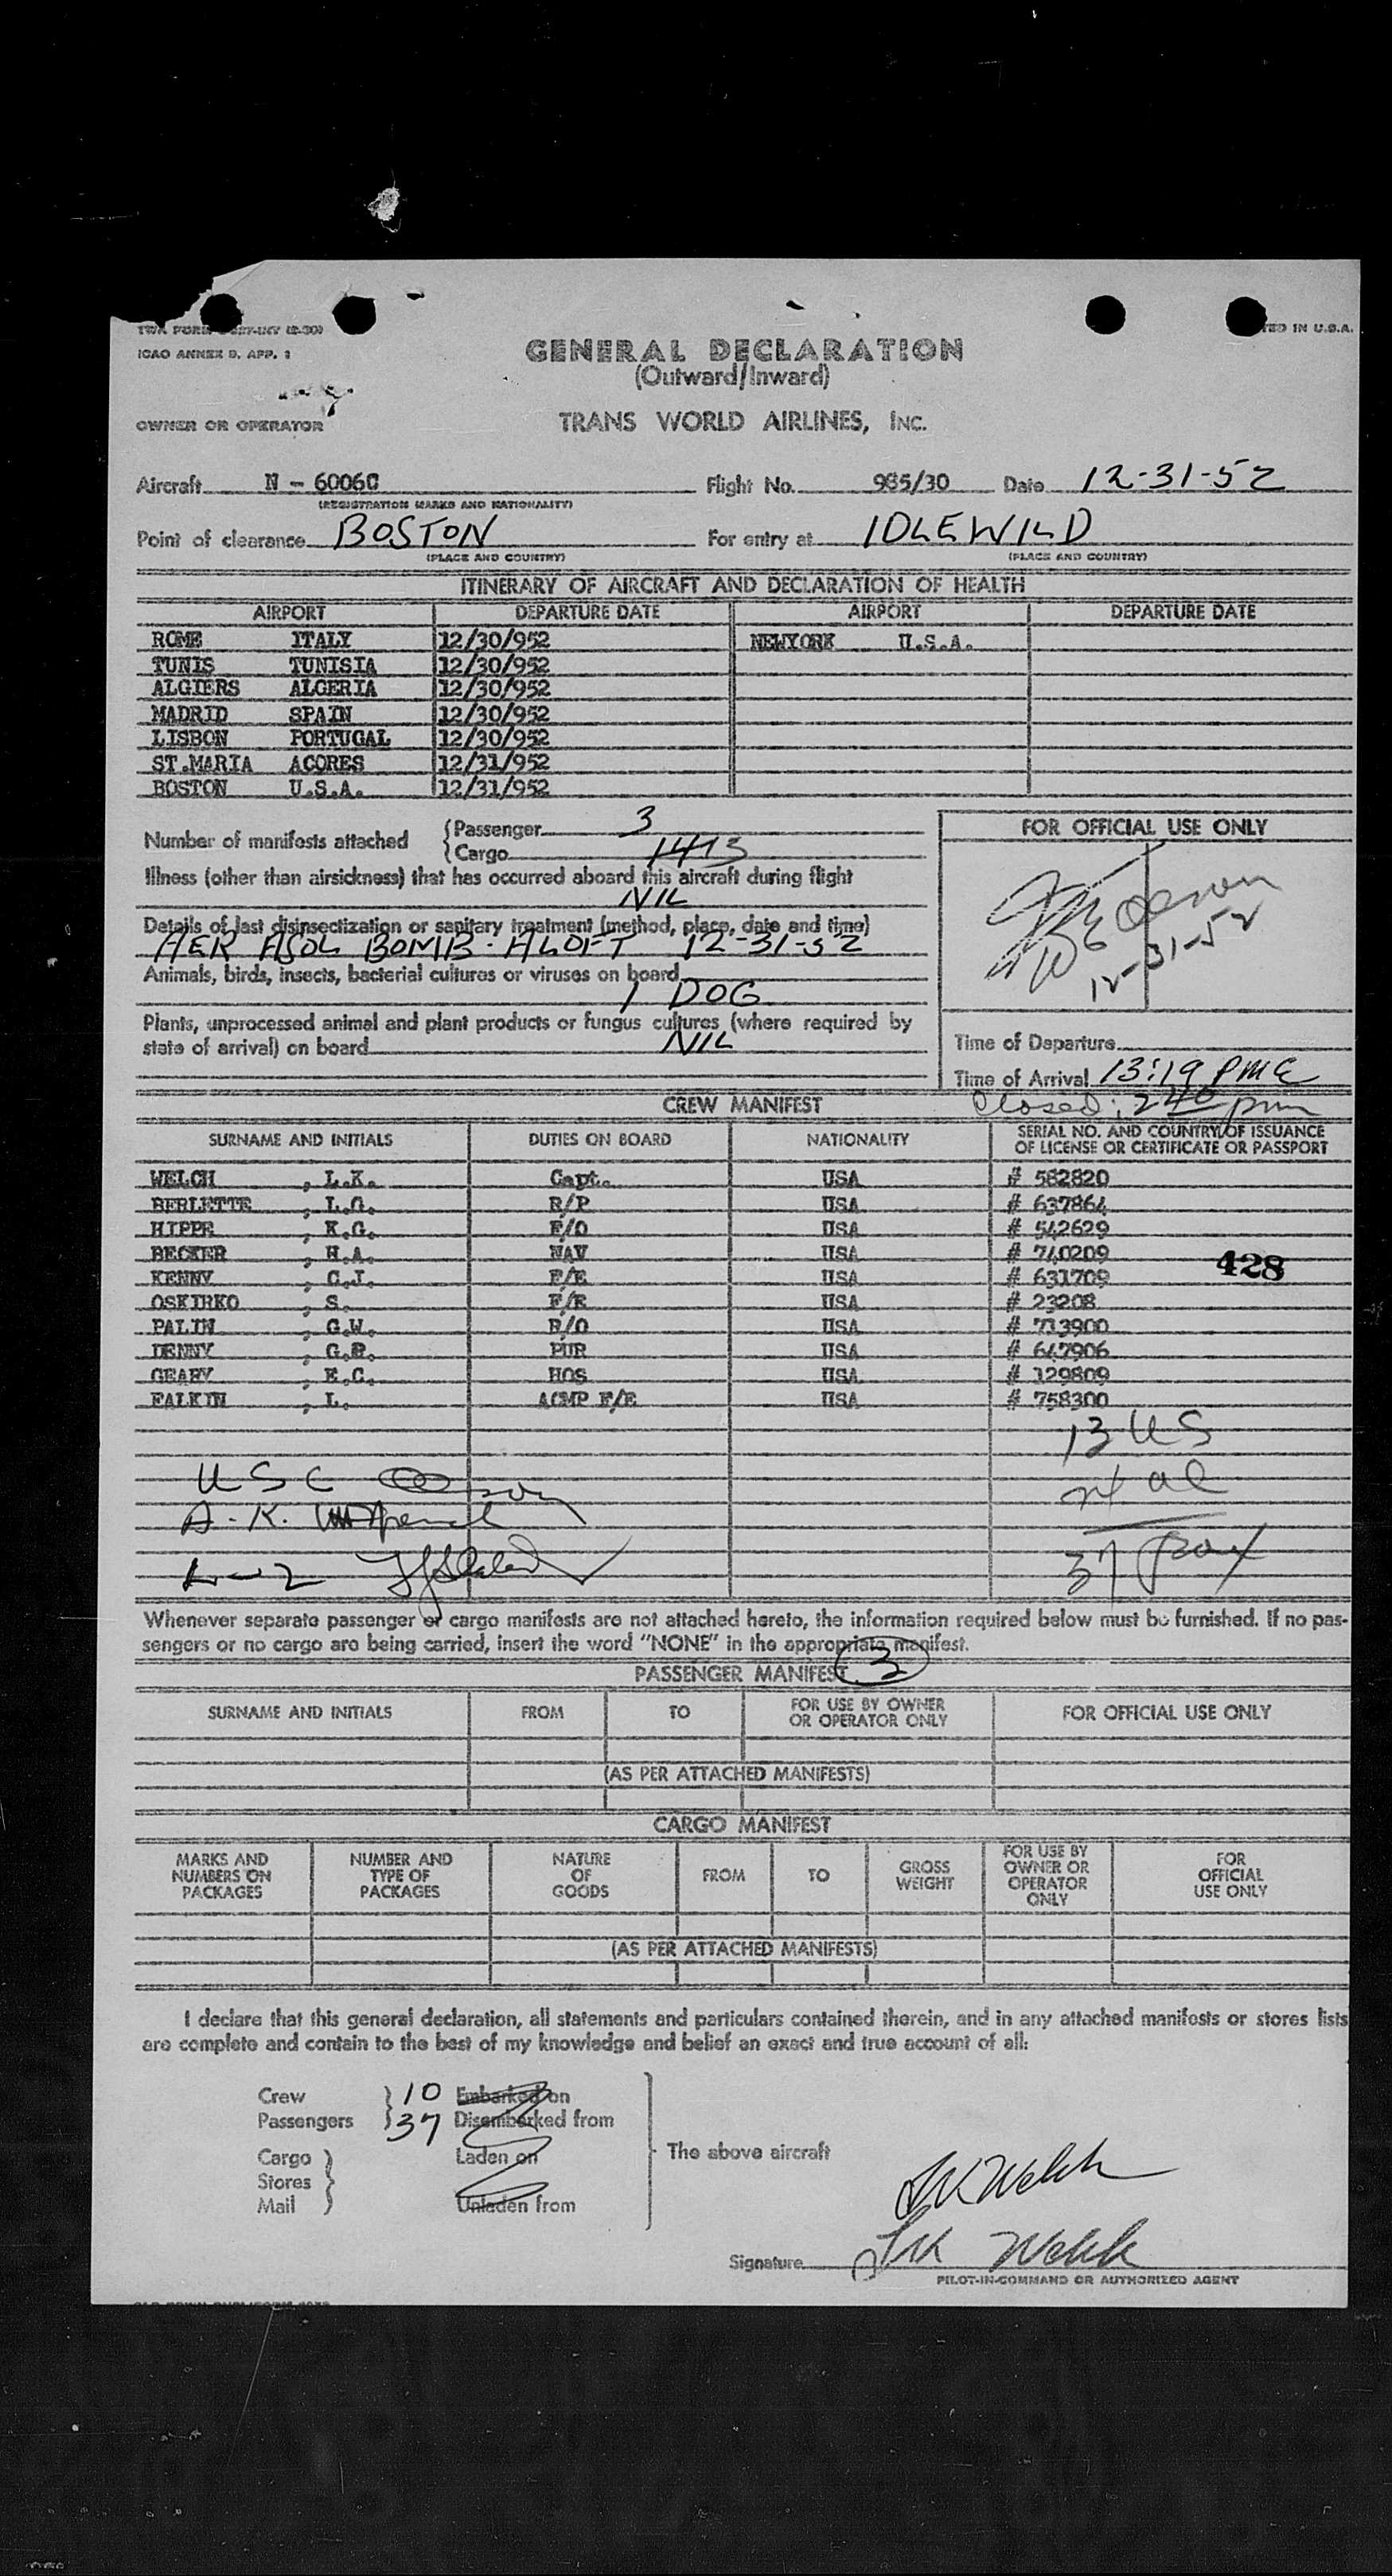 TWA FORM
TED IN U.S.A.
ICAO ANNEX 9, APP. 1
GENERAL DECLARATION
(Outward/Inward)
OWNER OR OPERATOR
TRANS WORLD AIRLINES, INC.
Aircraft N - 6006C Flight No. 985/30 Date 12-31-52
(REGISTRATION MARKS AND NATIONALITY)
Point of clearance BOSTON For entry at IDLEWILD
(PLACE AND COUNTRY) (PLACE AND COUNTRY)
ITINERARY OF AIRCRAFT AND DECLARATION OF HEALTH
AIRPORT DEPARTURE DATE AIRPORT DEPARTURE DATE
ROME ITALY 12/30/952 NEWYORK U.S.A.
TUNIS TUNISIA 12/30/952
ALGIERS ALGERIA 12/30/952
MADRID SPAIN 12/30/952
LISBON PORTUGAL 12/30/952
ST.MARIA ACORES 12/31/952
BOSTON U.S.A. 12/31/952
Number of manifests attached {Passenger 3
{Cargo
Illness (other than airsickness) that has occurred aboard this aircraft during flight
NIL
Details of last disinsectization or sanitary treatment (method, place, date and time)
AER ASOL BOMB - ALOFT 12-31-52
Animals, birds, insects, bacterial cultures or viruses on board
1 DOG
Plants, unprocessed animal and plant products or fungus cultures (where required by
state of arrival) on board NIL
FOR OFFICIAL USE ONLY
12-31-52
Time of Departure
Time of Arrival 13:19 PM
Closed: 240 pm
CREW MANIFEST
SURNAME AND INITIALS DUTIES ON BOARD NATIONALITY SERIAL NO. AND COUNTRY OF ISSUANCE
OF LICENSE OR CERTIFICATE OR PASSPORT
WELCH , L.K. Capt. USA # 582820
BERLETTE , L.G. R/P USA # 637864
HIPPE , K.G. F/O USA # 542629
BECKER , H.A. NAV USA # 740209
428
KENNY , C.J. F/E USA # 631709
OSKIRKO , S. F/E USA # 23208
PALIN , G.W. R/O USA # 713900
DENNY , G.P. PUR USA # 647906
GEARY , E.C. HOS USA # 129809
FALKIN , L. ACMP F/E USA # 758300
13 US
USC
24 al
A. K.
37 pax
Whenever separate passenger or cargo manifests are not attached hereto, the information required below must be furnished. If no pas-
sengers or no cargo are being carried, insert the word "NONE" in the appropriate manifest.
PASSENGER MANIFEST 3
SURNAME AND INITIALS FROM TO FOR USE BY OWNER
OR OPERATOR ONLY FOR OFFICIAL USE ONLY
(AS PER ATTACHED MANIFESTS)
CARGO MANIFEST
MARKS AND
NUMBERS ON
PACKAGES
NUMBER AND
TYPE OF
PACKAGES
NATURE
OF
GOODS
FROM
TO
GROSS
WEIGHT
FOR USE BY
OWNER OR
OPERATOR
ONLY
FOR
OFFICIAL
USE ONLY
(AS PER ATTACHED MANIFESTS)
I declare that this general declaration, all statements and particulars contained therein, and in any attached manifests or stores lists
are complete and contain to the best of my knowledge and belief an exact and true account of all:
Crew 10 Embarked on
Passengers 37 Disembarked from
Cargo Laden on
Stores
Mail Unladen from
The above aircraft
LK Welch
Signature LK Welch
PILOT-IN-COMMAND OR AUTHORIZED AGENT